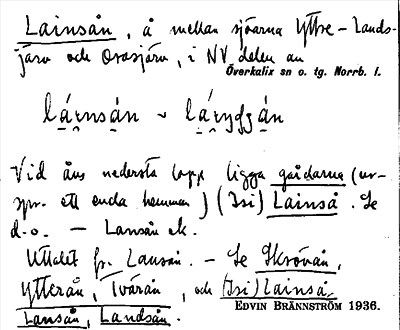 Lainsån, å mellan sjöarna Yttre-Lands-
järv och Orasjärv, i NV delen av
Överkalix sn o. tg. Norrb. l.
Vid åns nedersta lopp ligga gårdarna (ur-
spr. ett enda hemman) (Isi) Lainså. Se
d.o. — Lansån ek.
Uttalet fr. Lansån. – Se Skrövån,
Ytterån, Tvärån, och (Isi) Lainså,
Lansån, Landsån.
EDVIN BRÄNNSTRÖM 1936.